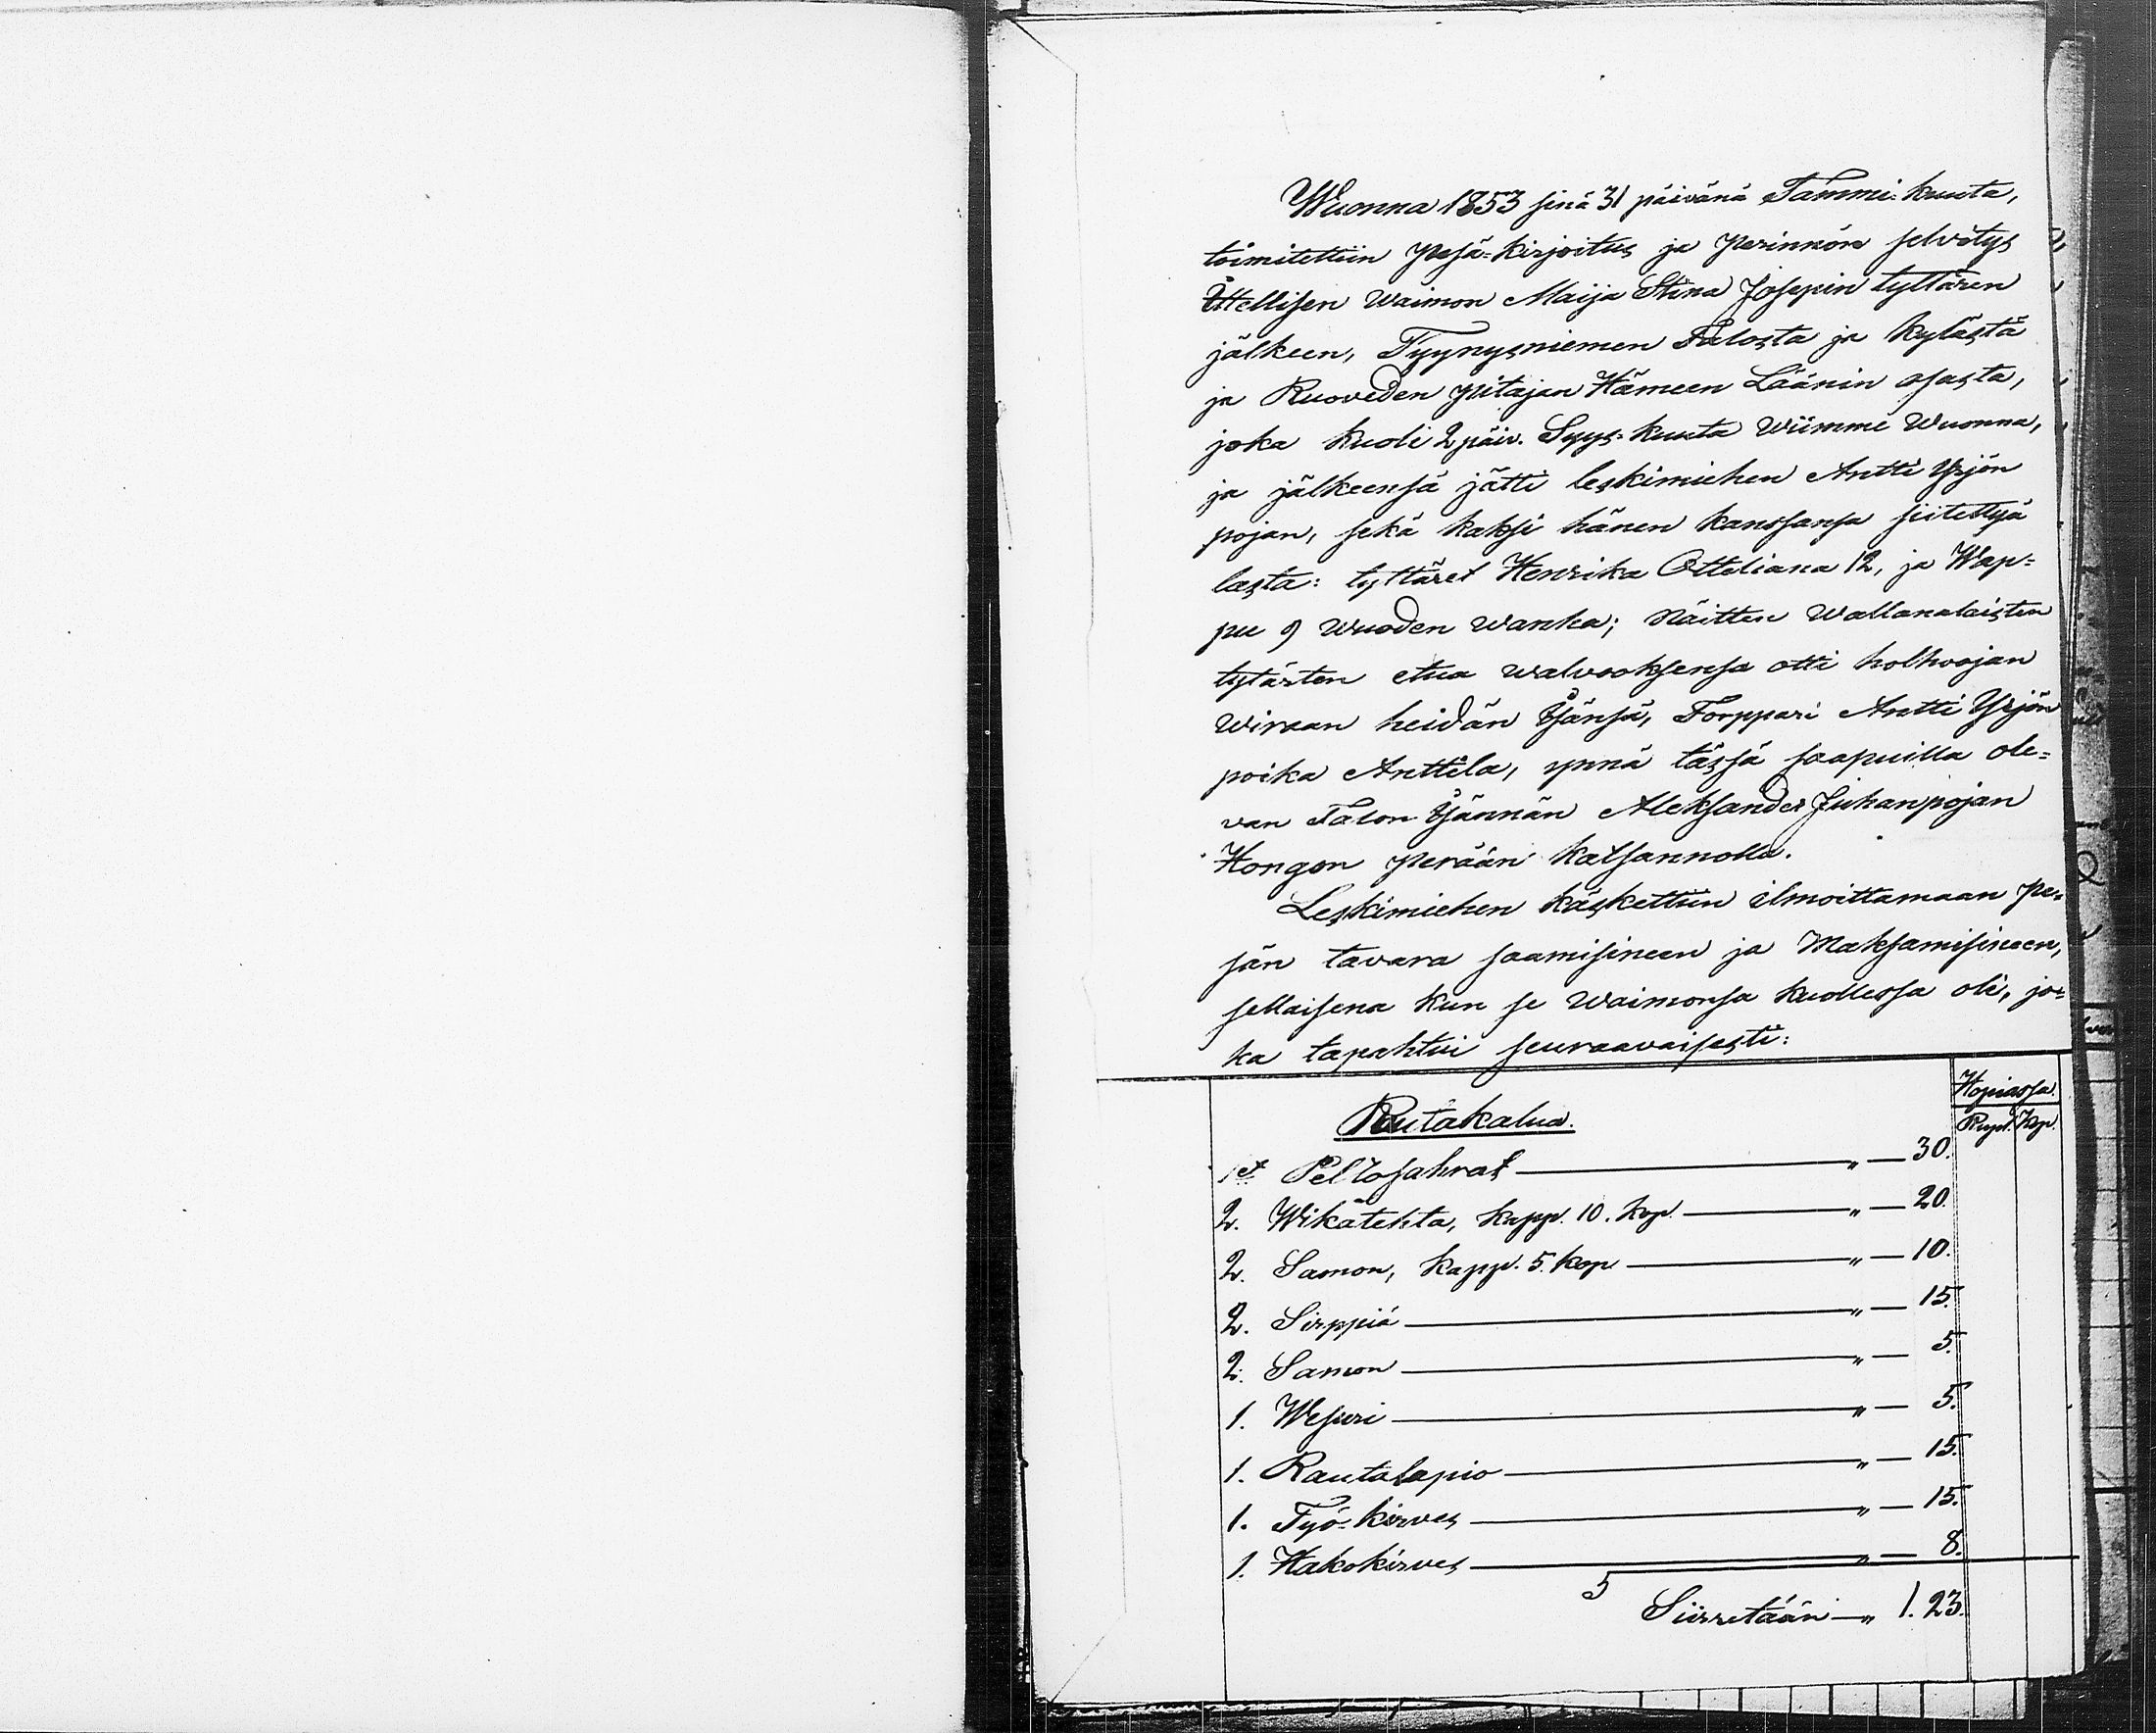 Wuonna 1853 sinä 31 päivänä Tammi-kuuta,
toimitettiin pesä-kirjoitus ja perinnön selvitys
Ittellisen waimon Maija Stina Josepin tyttären
jälkeen, Tyynysniemen Talosta ja kylästä
ja Ruoveden pitajan Hämeen Läänin osasta,
joka kuoli 2 päiv. Syys-kuuta wiimme wuonna,
ja jälkeensä jätti leskimiehen Antti Yrjön
pojan, sekä kaksi hänen kanssansa siitettyä
lasta: tyttäret Henrika Otteliana 12, ja Wap-
pu 9 wuoden wanha; näitten wallanalaisten
tytärten etua walvooksensa otti holhoojan
wiraan heidän Isänsä, Torppari Antti Yrjön
poika Anttila, ynnä tässä saapuilla ole-
van Talon Isännän Aleksander Juhanpojan
Hongon perään katsannolla.
Leskimiehen käskettiin ilmoittamaan pe-
sän tavara saamisineen ja Maksamisineen,
sellaisena kun se waimonsa kuollessa oli, jo-
ka tapahtui seuraavaisesti:
Hopiassa.
Rautakalua. Rupl. Kop.
1et Peltosahrat — " — 30.
2. Wikätehta, kapp. 10. kop. — " — 20.
2. Samon, kapp. 5. kop — " — 10.
2. Sirppiä — " — 15.
2. Samon — " — 5.
1. Wesuri — " — 5.
1. Rautalapio — " — 15.
1. Työ-kirves — " — 15.
1. Hakokirves — " — 8.
Siirretään — " 1. 23.